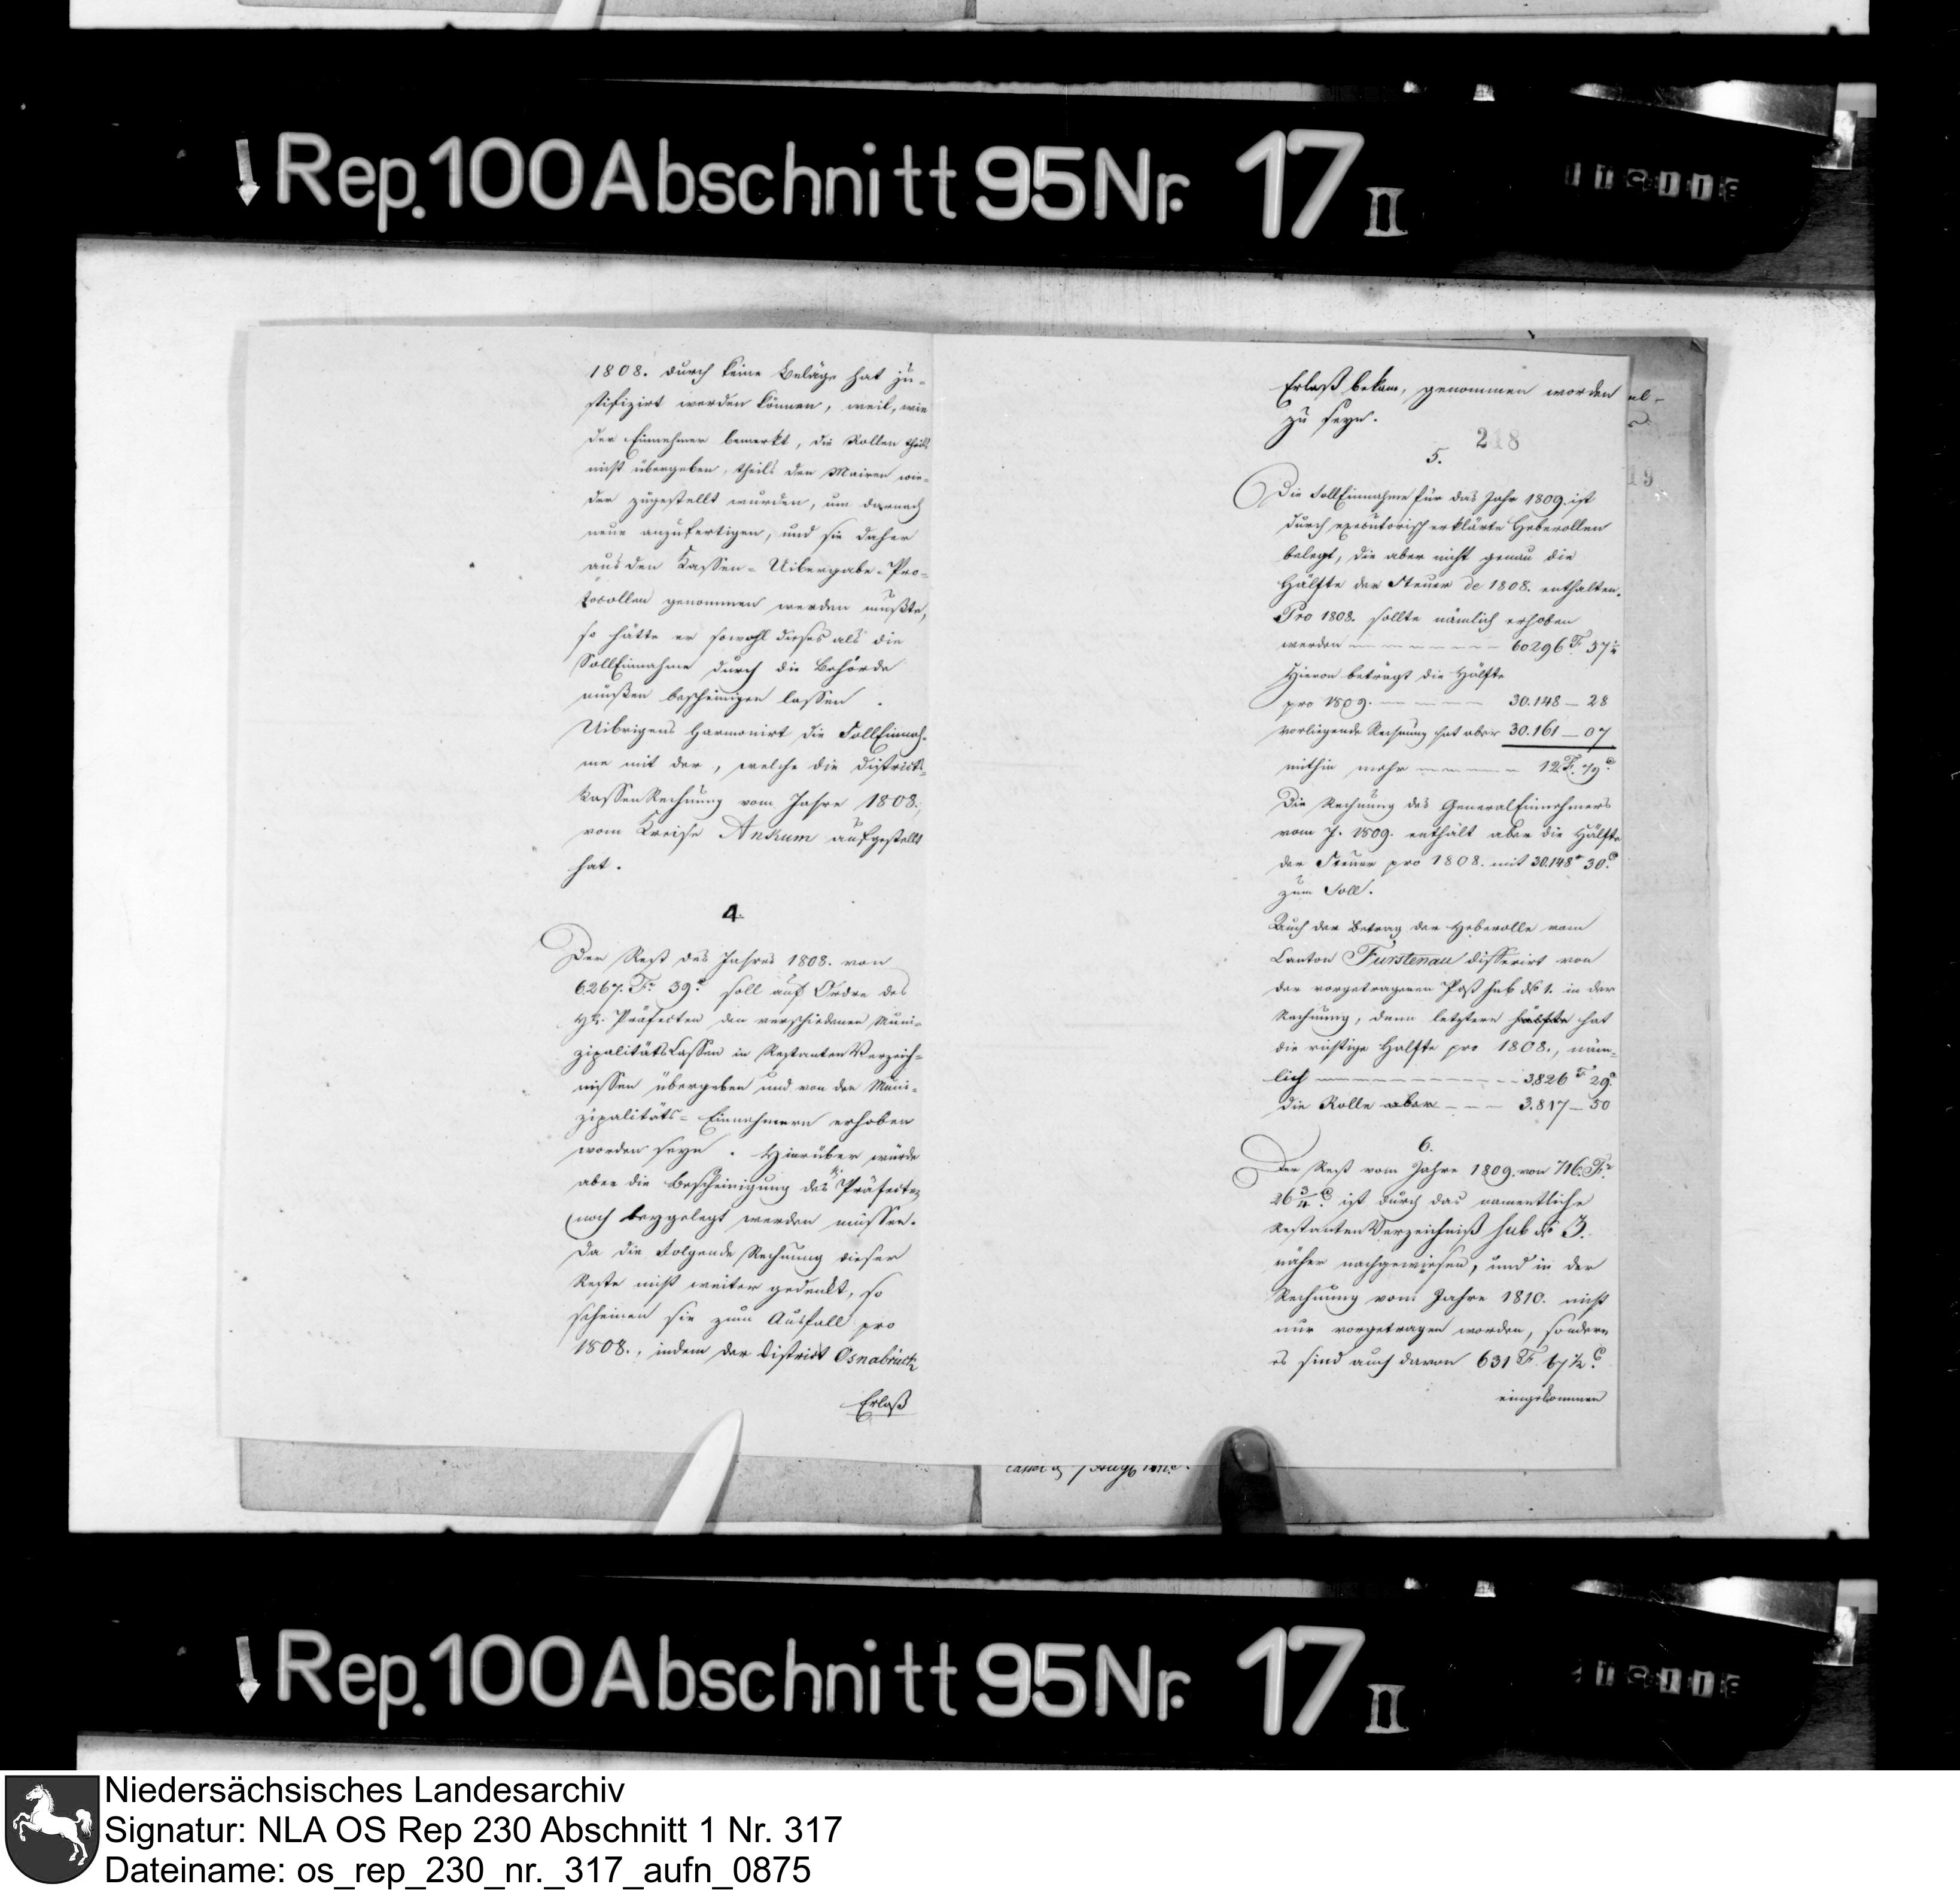 ↓Rep.100Abschnitt95Nr. 17 II
1808. durch keine Beläge hat ju-
stifizirt werden können, weil, wie
der Einnehmer bemerkt, die Rollen theils
nicht übergeben, theils den Mairen wie-
der zugestellt wurden, um darnach
neue anzufertigen, und sie daher
aus den Kassen-Uibergabe-Pro-
tocollen genommen werden mußte,
so hätte er sowohl dieses als die
SollEinnahme durch die Behörde
müßen bescheinigen lassen.
Uibrigens harmonirt die SollEinnah-
me mit der, welche die Districts-
kassen Rechnung vom Jahre 1808.,
vom Kreise Ankum aufgestellt
hat.
4.
Der Rest des Jahres 1808. von
6267. Fr. 39 c. soll auf Ordre des
Hr. Präfecten den verschiedenen Muni-
zipalitäts Cassen in Restanten Verzeich-
nissen übergeben und von den Muni-
zipalitäts-Einnehmern erhoben
worden seyn. Hierüber würde
aber die Bescheinigung des H. Präfecten
noch beygelegt werden müssen.
Da die folgende Rechnung dieser
Reste nicht weiter gedenkt, so
scheinen sie zum Ausfall pro
1808., indem der District Osnabrück
Erlaß
Erlaß bekam, genommen worden
zu seyn.
218
5.
Die SollEinnahme für das Jahr 1809. ist
durch executorisch erklärte Heberollen
belegt, die aber nicht genau die
Hälfte der Steuer de 1808. enthalten.
Pro 1808. sollte nämlich erhoben
werden ------- 60296 F. 57 c.
Hievon beträgt die Hälfte
pro 1809. ----- 30.148 - 28
vorliegende Rechnung hat aber 30.161 - 07
mithin mehr ----- 12 F. 79 c.
Die Rechnung des General Einnehmers
vom J. 1809. enthält aber die Hälfte
der Steuer pro 1808. mit 30.148 F 30 c.
zum Soll.
Auch der Betrag der Heberolle vom
Canton Fürstenau differirt von
der vorgetragenen Post sub № 1. in der
Rechnung, denn letztere hälfte hat
die richtige Halfte pro 1808., näm-
lich ------------ 3826 F 29 c.
die Rolle aber --- 3.817 - 50
6.
Der Rest vom Jahre 1809. von 716. Fr.
26 3/4 c. ist durch das namentliche
Restanten Verzeichniß sub № 3.
näher nachgewiesen, und in der
Rechnung vom Jahre 1810. nicht
nur vorgetragen worden, sondern
es sind auch davon 631 F. 67 1/2 c.
eingekommen
↓Rep.100Abschnitt95Nr. 17 II
Niedersächsisches Landesarchiv
Signatur: NLA OS Rep 230 Abschnitt 1 Nr. 317
Dateiname: os_rep_230_nr._317_aufn_0875